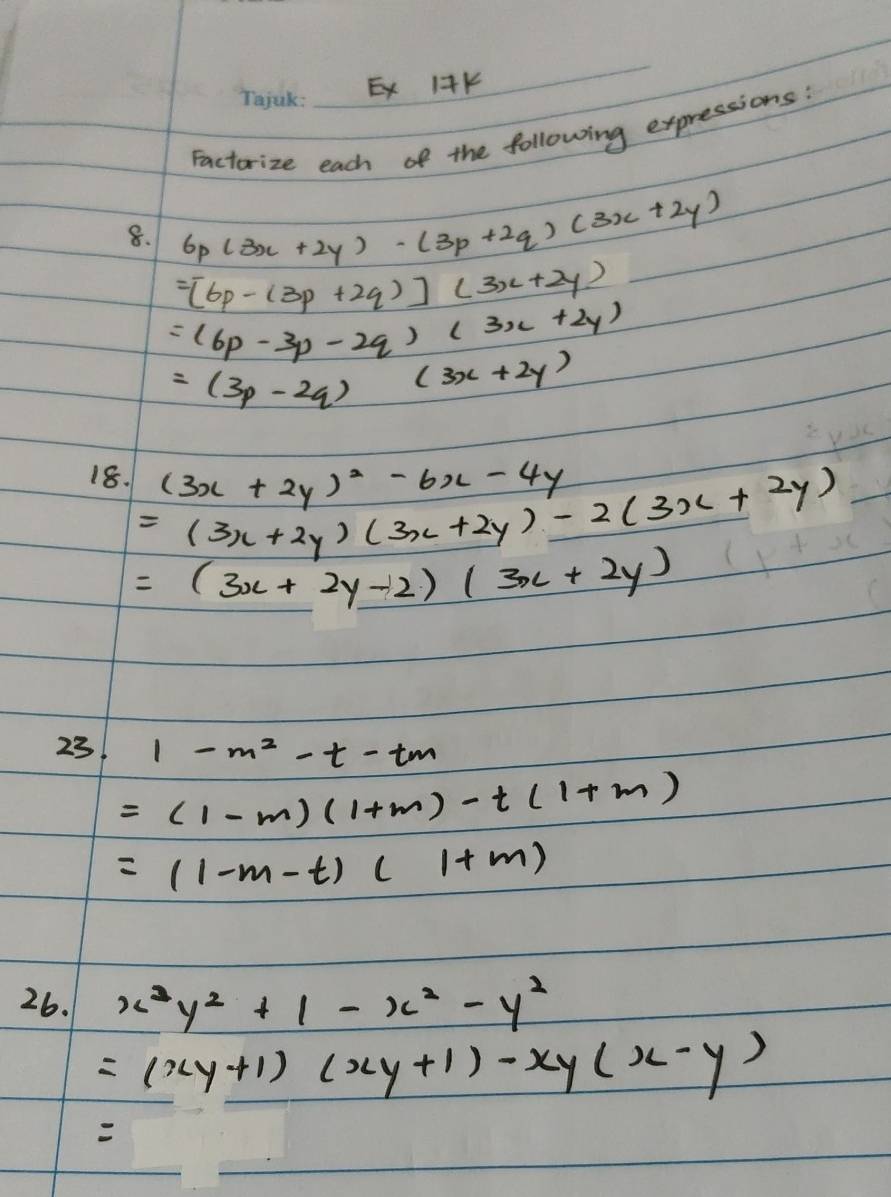 Tajuk: Ex 17K
Factorize each of the following expressions:
8. 6p (3x + 2y) - (3p + 2q) (3x + 2y)
= [6p - (3p + 2q)] (3x + 2y)
= (6p - 3p - 2q) (3x + 2y)
= (3p - 2q) (3x + 2y)
18. (3x + 2y)² - 6x - 4y
= (3x + 2y) (3x + 2y) - 2 (3x + 2y)
= (3x + 2y - 2) (3x + 2y)
23. 1 - m² - t - tm
= (1 - m) (1 + m) - t (1 + m)
= (1 - m - t) (1 + m)
26. x²y² + 1 - x² - y²
= (xy + 1) (xy + 1) - xy (x - y)
=